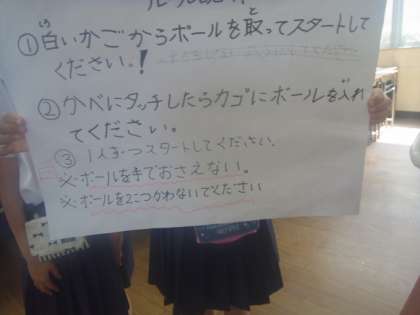 ①白いかごからボールを取ってスタートして
しろ と
ください。!
②かべにタッチしたらカゴにボールを入れ
い
てください。
③ 1人ずつスタートしてください。
※ボールを手でおさえない。
※ボールを2こつかわないでください